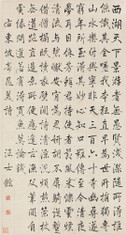 西湖天下景遊者無愚賢淺深隨所得誰
能識其全嗟我本狂直早為世所捐獨專
山水樂付與寧非天三百六十寺幽尋遂
窮年所至得其妙心知口難傳至今清夜
夢耳目餘芳鮮君持使者節風采爍雲煙
清流與碧巘安肯為君妍胡不屏騎從暫
借僧榻眠讀我壁間詩清涼洗煩煎策杖
無道路直造意所便應逢古漁父葦間自
延緣問道若有得買魚勿論錢
汪士鋐